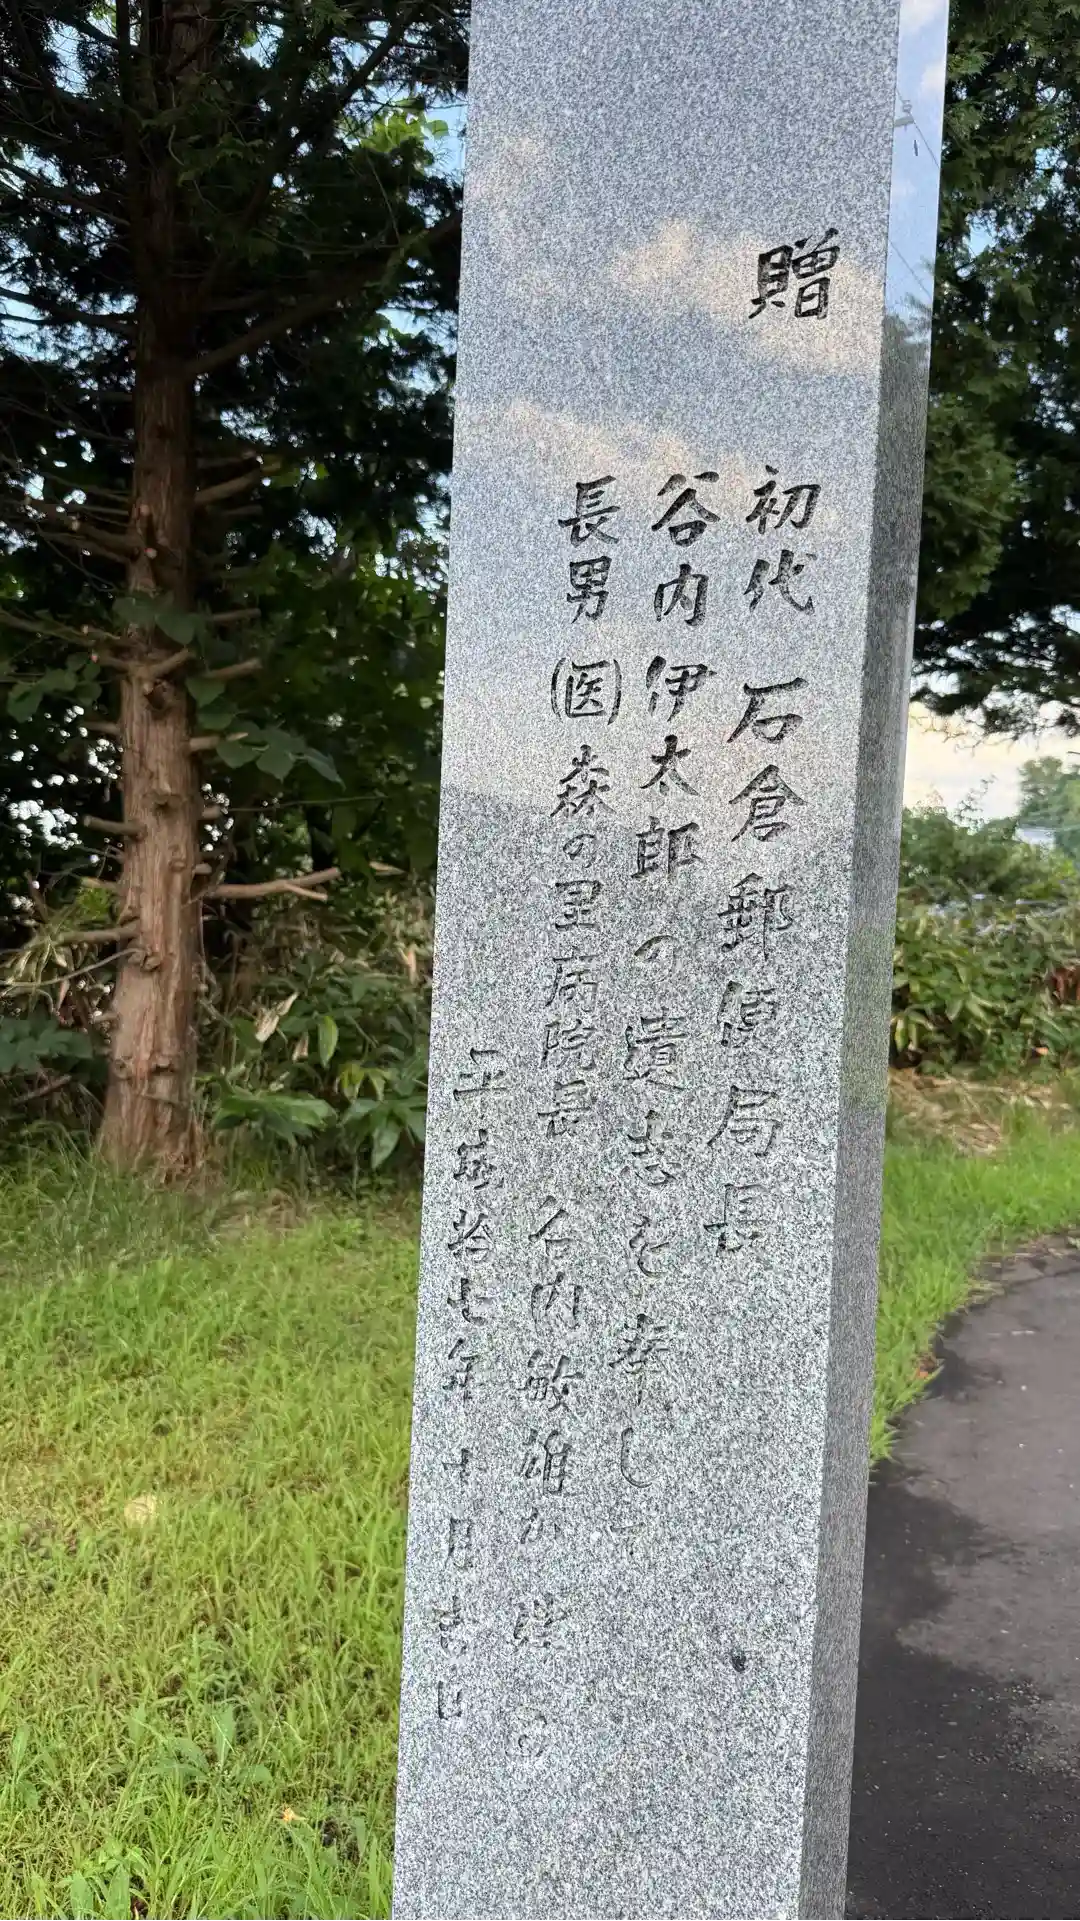 贈
初代 石倉郵便局長
谷内伊太郎の遺志を奉して
長男(医)森の里病院長 谷内敏雄が建
平成拾七年十月吉日